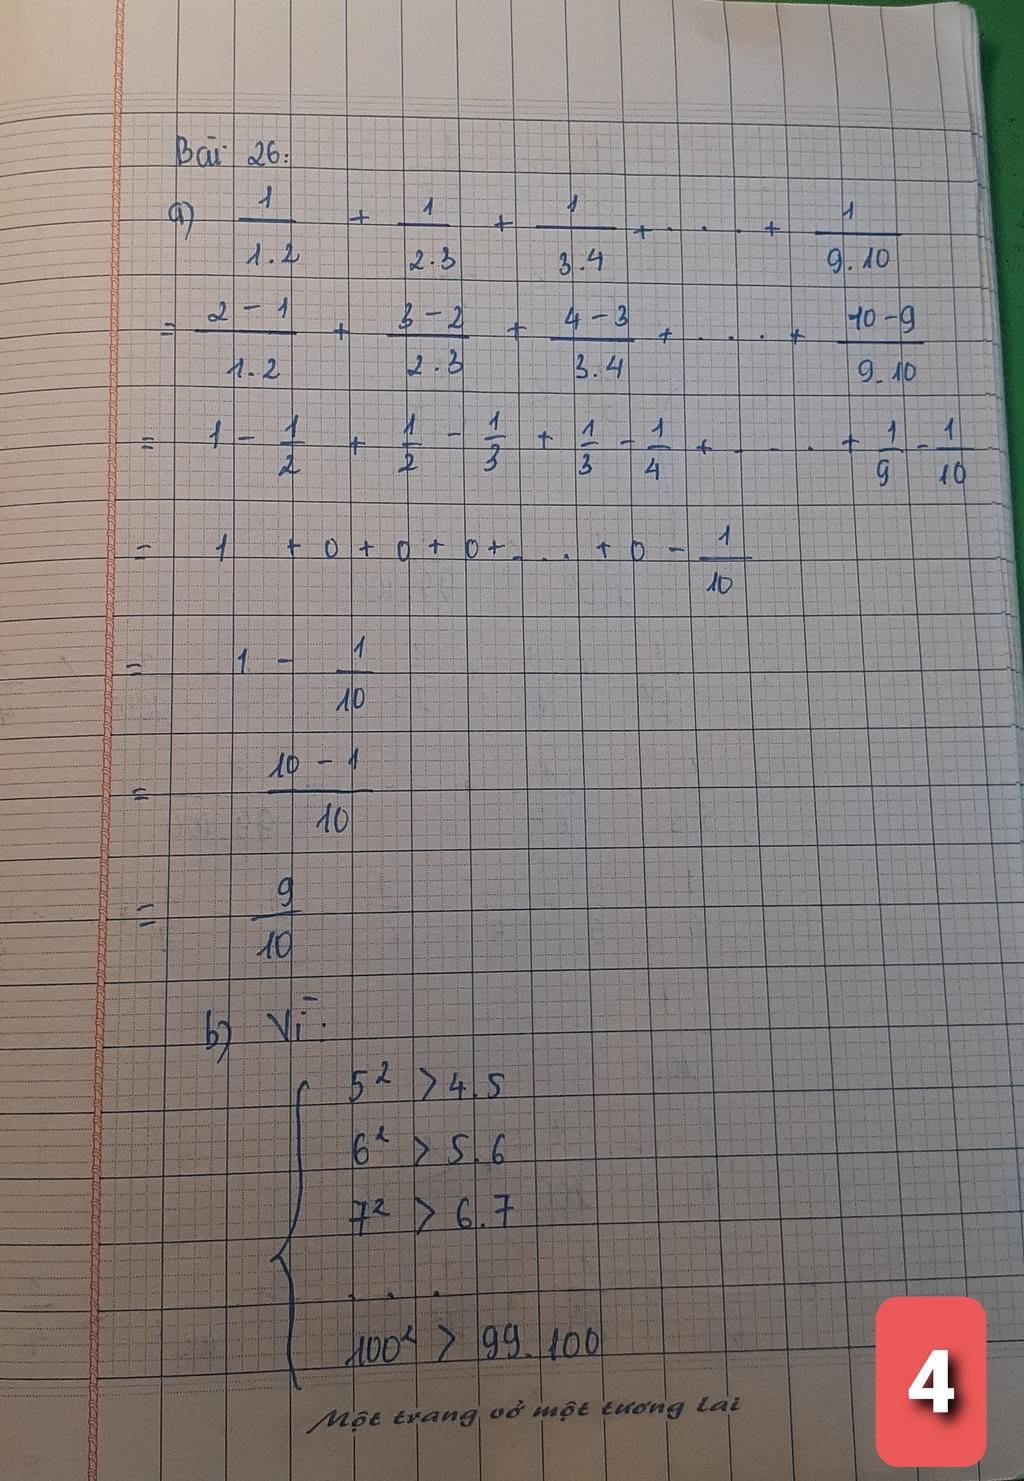 Bài 26:
a) 1/1.2 + 1/2.3 + 1/3.4 + .... + 1/9.10
= 2-1/1.2 + 3-2/2.3 + 4-3/3.4 + .... + 10-9/9.10
= 1 - 1/2 + 1/2 - 1/3 + 1/3 - 1/4 + .... + 1/9 - 1/10
= 1 + 0 + 0 + 0 + ... + 0 - 1/10
= 1 - 1/10
= 10-1/10
= 9/10
b) Vì:
5² > 4.5
6² > 5.6
7² > 6.7
...
100² > 99.100
Một trang vở một tương lai
4